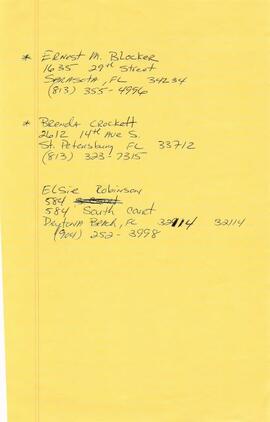 * Ernest M. Blocker
1635 29th Street
Sarasota, FL 34234
(813) 355-4996
* Brenda Crockett
2612 14th Ave S.
St. Petersburg FL 33712
(813) 323-7315
Elsie Robinson
584
584 South Court
Daytona Beach, FL 32114 32114
(904) 252-3998